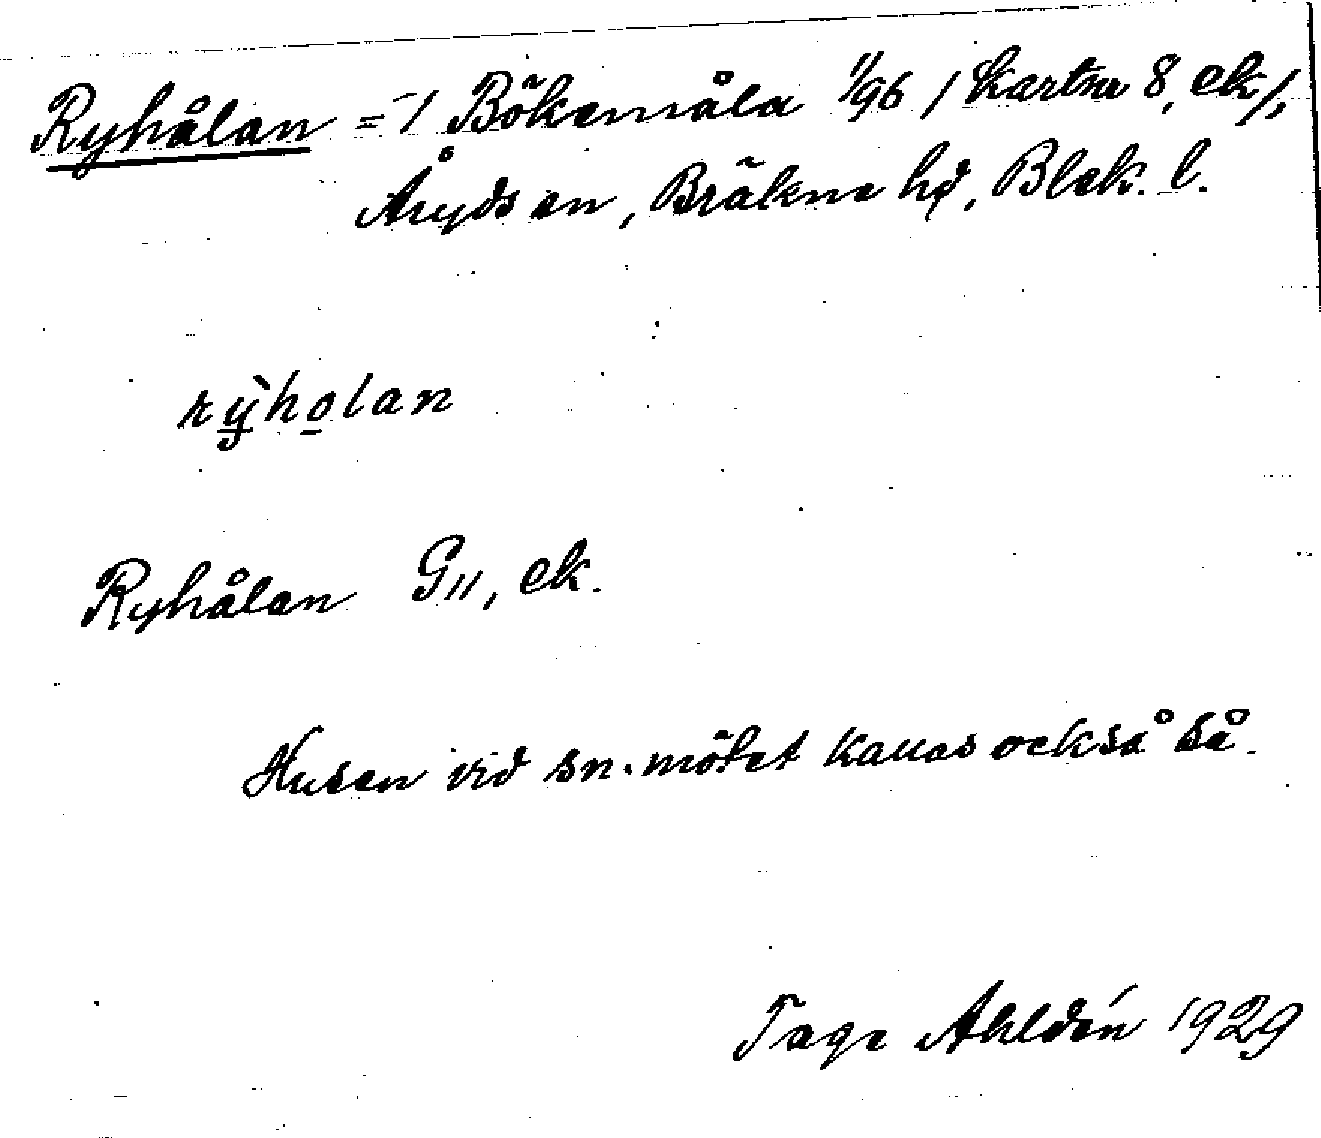 Ryhålan = 1 Bökemåla 1/96 / Kartnr 8, ek/,
Åryds sn, Bräkne hd, Blek. l.
rỳholan
Ryhålan G11, ek.
Husen vid sn.mötet kallas också så.
Tage Ahldén 1929